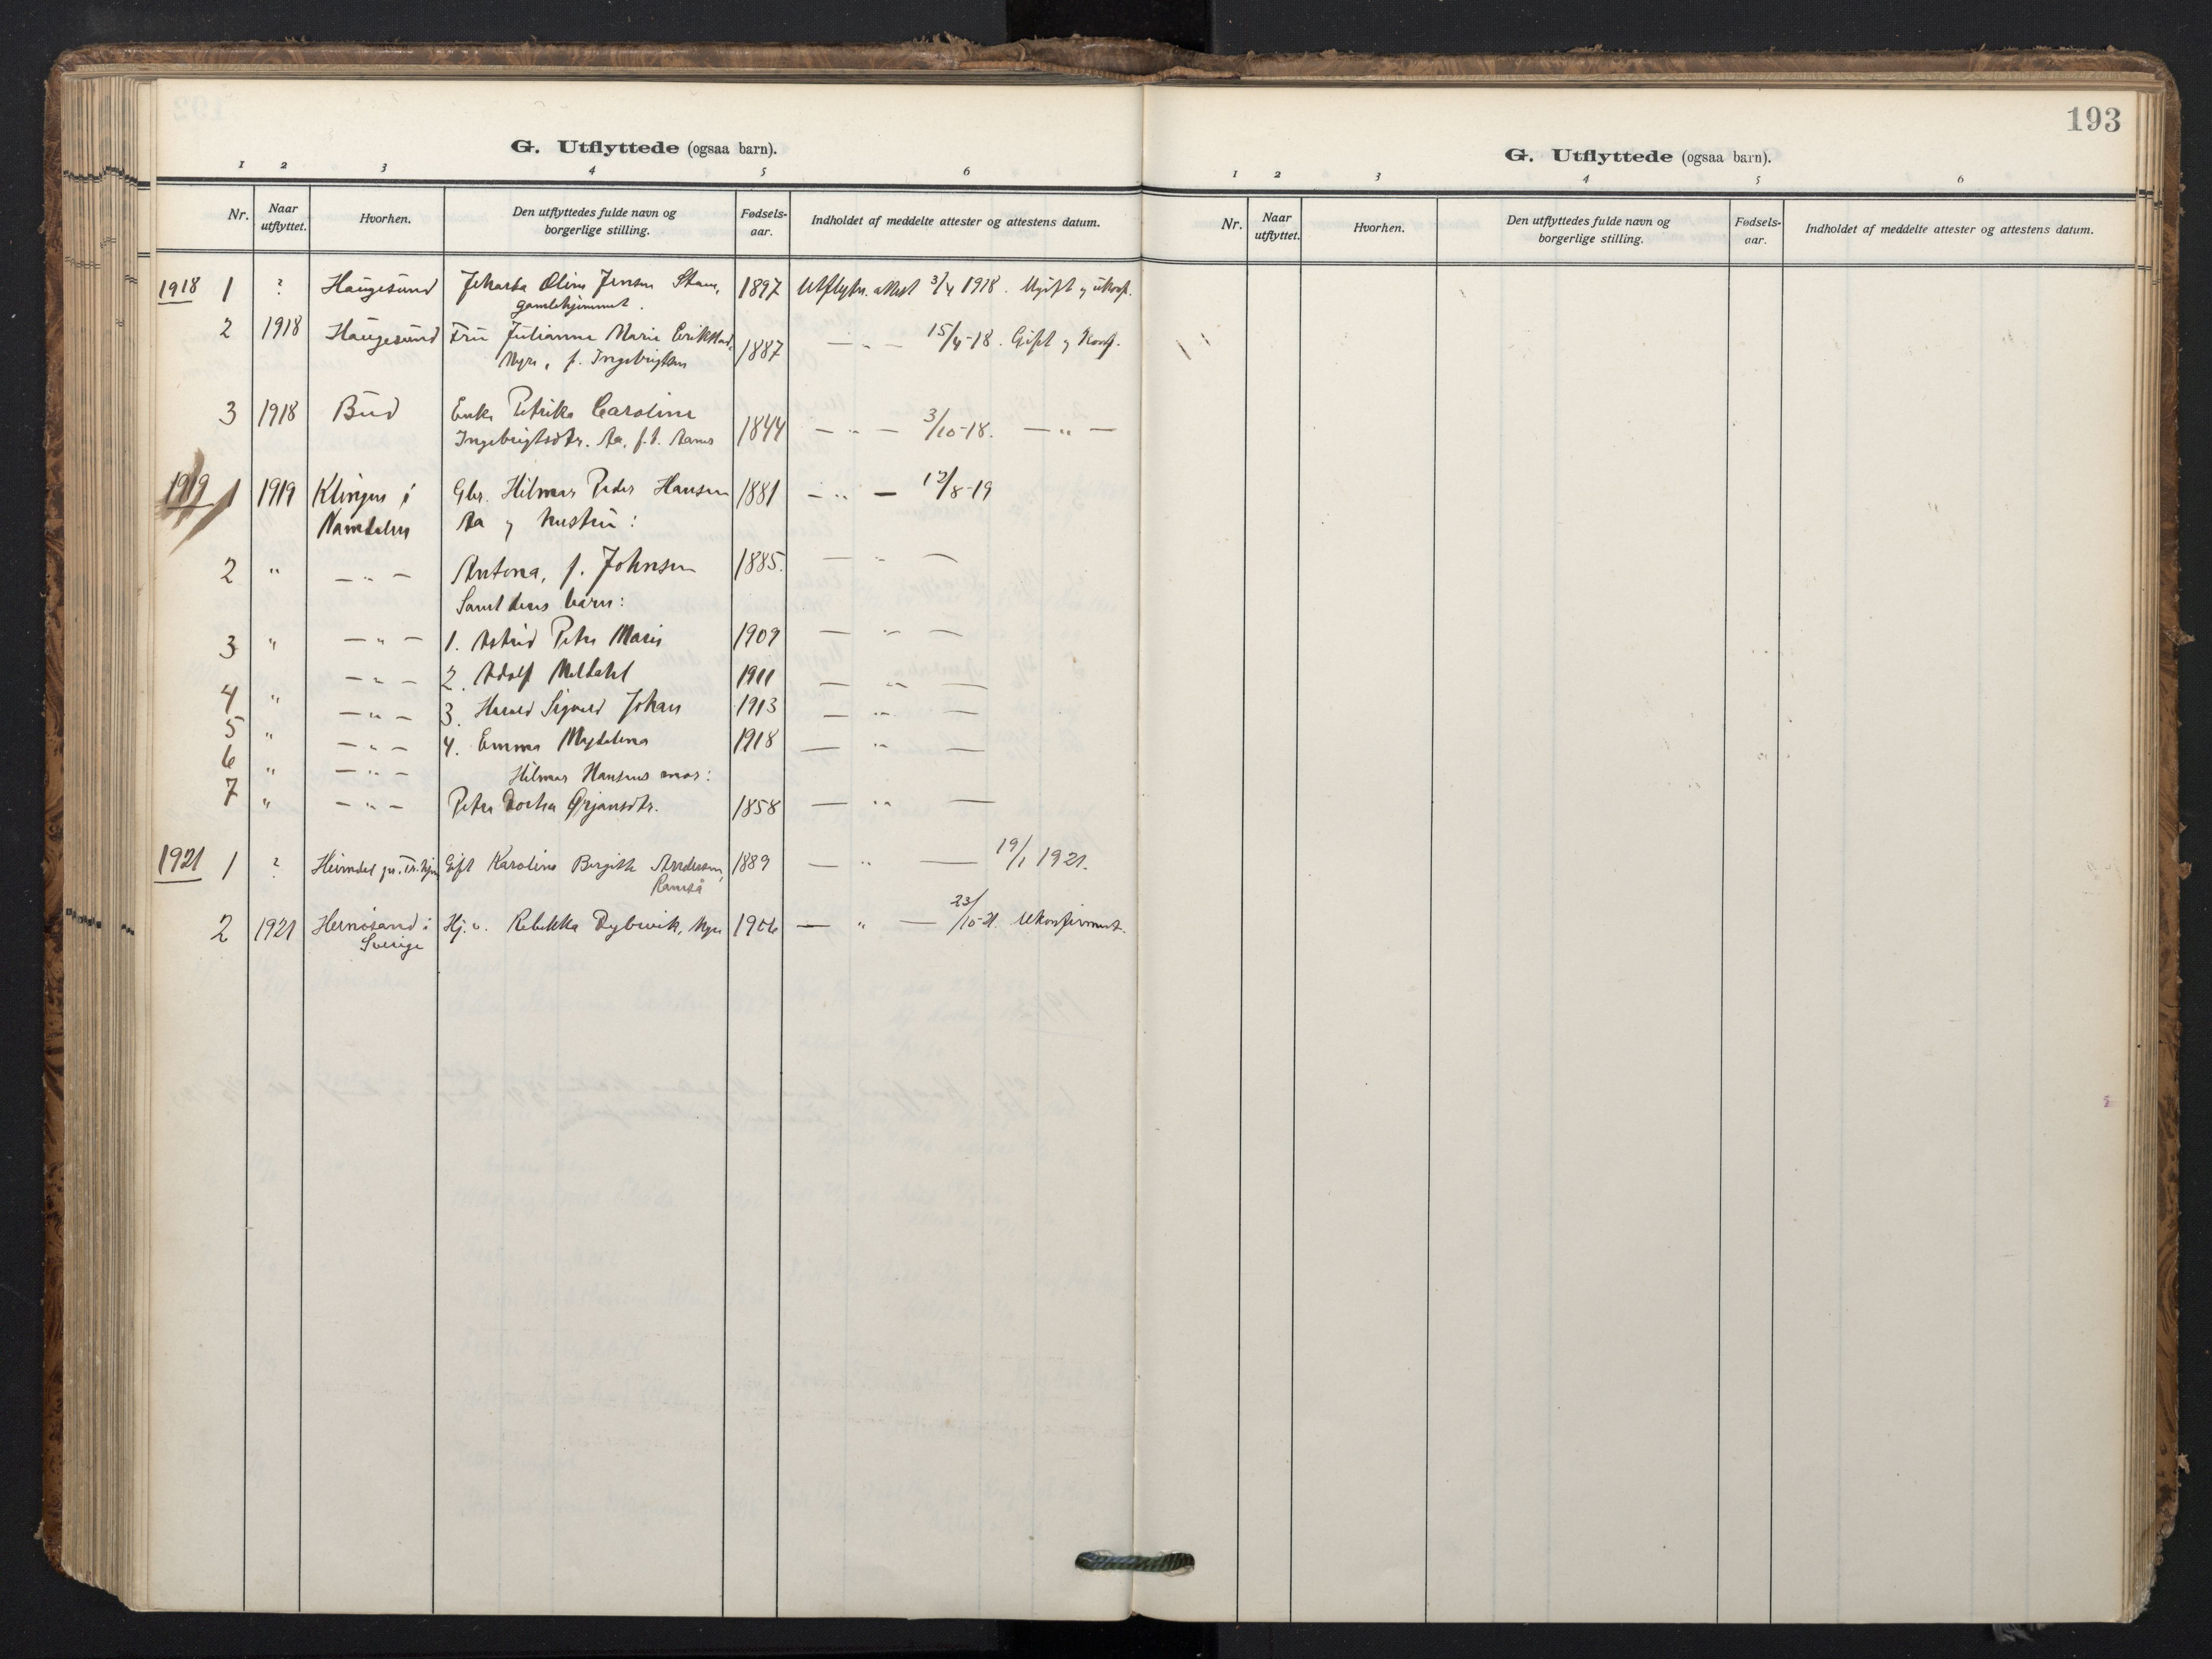 193
G. Utflyttede (ogsaa barn).
1 2 3 4 5 6
Nr. Naar utflyttet. Hvorhen. Den utflyttedes fulde navn og borgerlige stilling. Fødsels-aar. Indholdet af meddelte attester og attestens datum.
1918 1 ? Haugesund Oline Jensen 1897 Utflytn. attest 3/4 1918. Ugift og
gamlehjemmet.
2 1918 Haugesund Fru Julianne Marie Erikstad, 1887 — " — 15/4-18. Gift og Konf.
f. Ingebrigtsen
3 1918 Bud Enke Petrike Caroline
Ingebrigtsdtr. Aa, f. 1844 — " — 3/10-18. — " —
1919 1 1919 Klingen i Gbr. Hilmar Peder Hansen 1881 — " — 12/8-19
Namdalen Aa og hustru:
2 " — " — Antona, f. Johnsen 1885. — " —
Samt deres barn:
3 " — " — 1. Astrid Petra Marie 1909 — " —
4 " — " — 2. Adolf Meldahl 1911 — " —
5 " — " — 3. Harald Sigurd Johan 1913 — " —
6 " — " — 4. Emma Magdalena 1918 — " —
" — " — Hilmar Hansens mor:
7 " — " — Petra Dortea Ørjansdtr. 1858 — " —
1921 1 ? Heimdal pr. Tr.hjem Gift Karoline Birgitte Andersen, 1889 — " — 19/1 1921.
Ramså
2 1921 Hernösand i Hj. v. Rebekka Dybwik, 1906 — " — 23/10-21. Ukonfirmert.
Sverige
G. Utflyttede (ogsaa barn).
1 2 3 4 5 6
Nr. Naar utflyttet. Hvorhen. Den utflyttedes fulde navn og borgerlige stilling. Fødsels-aar. Indholdet af meddelte attester og attestens datum.